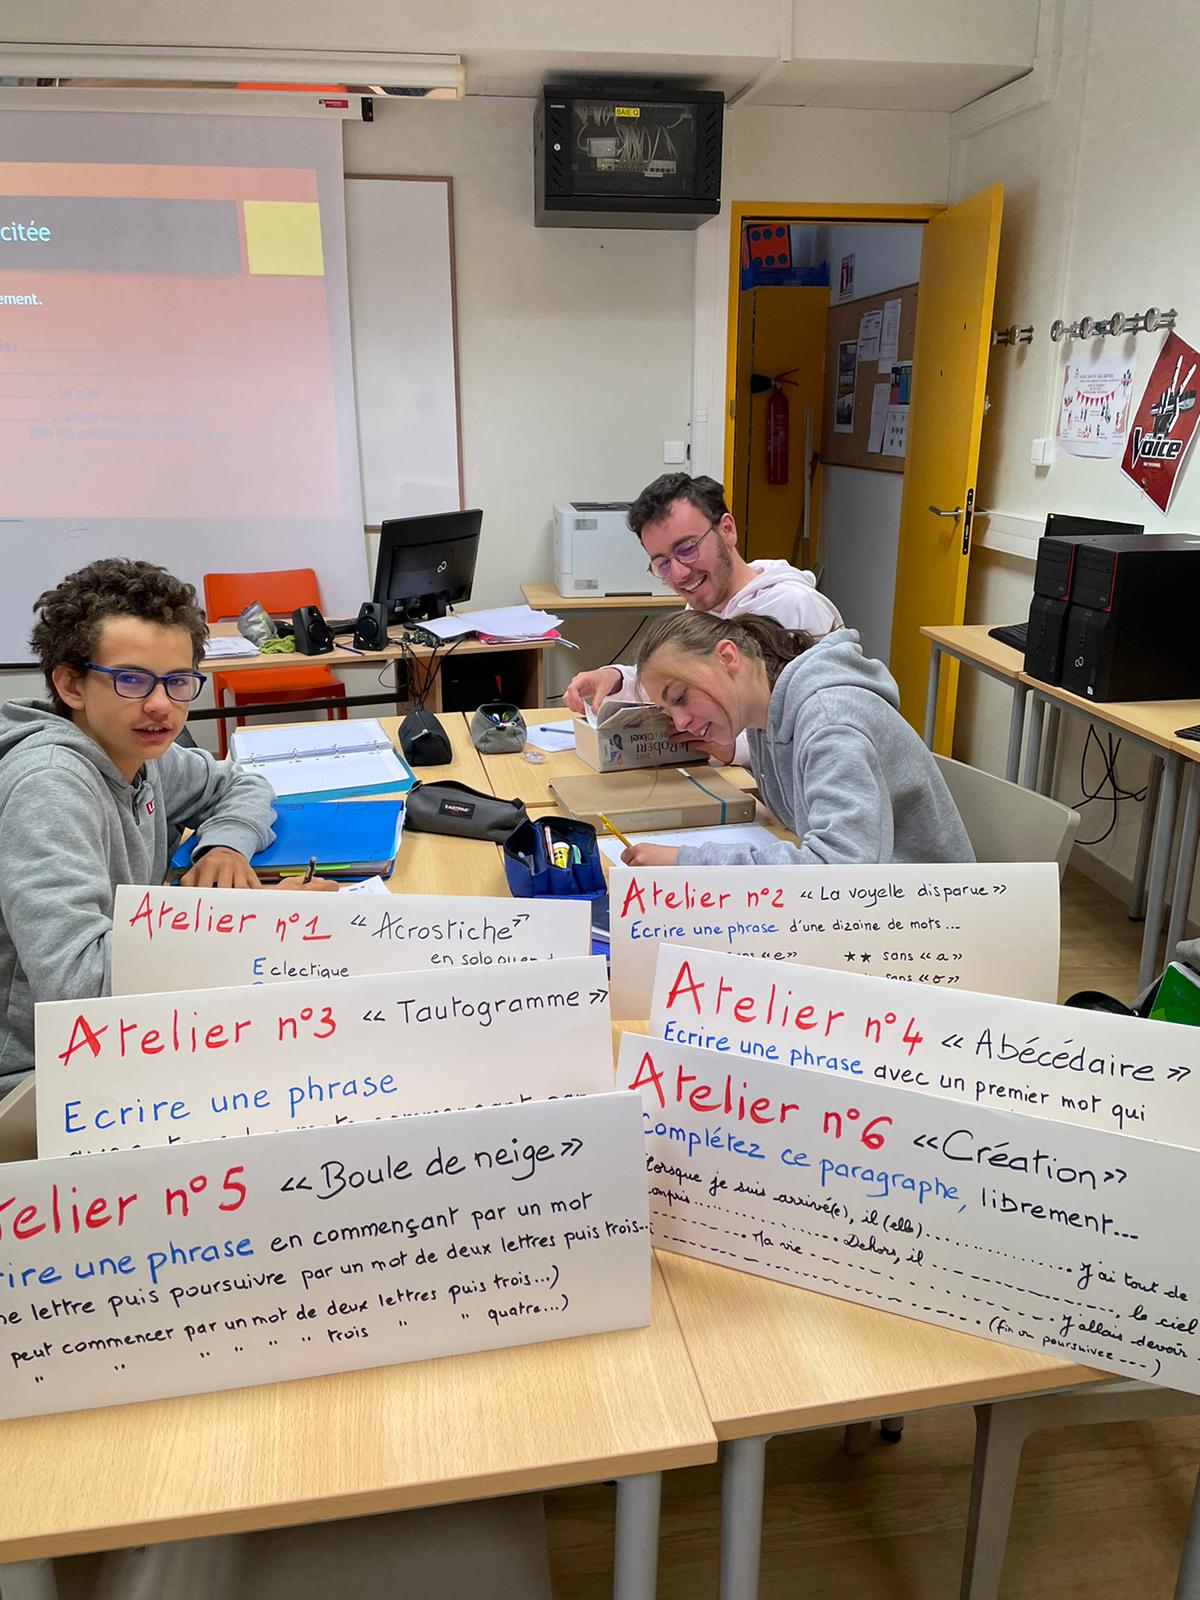 citée
ement.
le ciel
BAIE Q
Voice
LE ROBERT
& Dixel
2013
EASTPAK
Atelier n°1 « Acrostiche »
Eclectique
en solo ou en
Atelier n°2 « La voyelle disparue »
Ecrire une phrase d'une dizaine de mots...
sans « e » ★★ sans « a »
sans « o »
Atelier n°3 « Tautogramme »
Ecrire une phrase
Atelier n°4 « Abécédaire »
Ecrire une phrase avec un premier mot qui
telier n°5 « Boule de neige »
rire une phrase en commençant par un mot
ne lettre puis poursuivre par un mot de deux lettres puis trois...
peut commencer par un mot de deux lettres puis trois...)
" " " " " trois " " quatre...)
Atelier n°6 « Création »
Complétez ce paragraphe, librement...
Lorsque je suis arrivé(e), il (elle) .................. J'ai tout de
compris.................. Dehors, il ------------, le ciel
--------. Ma vie - - - - - - - - . J'allais devoir
------------------ (fin ou poursuivez ---)